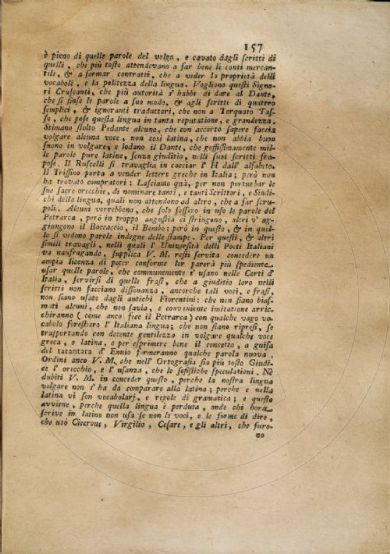 157
è pieno di quelle parole del volgo, e cavato dagli scritti di
quelli, che più tosto attendevano a far bene li conti mercan-
tili, & a formar contratti, che a veder la proprietà delli
vocaboli, e la politezza della lingua. Vogliono questi Signo-
ri Cruscanti, che più autorità s'habbi di dare al Dante,
che si finse le parole a suo modo, & agli scritti di quattro
semplici, & ignoranti traduttori, che non a Torquato Tas-
so, che pose questa lingua in tanta reputatione, e grandezza.
Stimano stolto Pedante alcuno, che con accorto sapere faccia
volgare alcuna voce, non così latina, che non abbia buon
suono in volgare; e lodano il Dante, che goffissimamente mil-
le parole pure latine, senza giuditio, nelli suoi scritti fra-
pose. Il Ruscelli si travaglia in cacciar l'H dall'alfabeto.
Il Trissino porta a vender lettere greche in Italia; però non
ha trovato compratori: Lasciamo quì, per non perturbar le
sue sacre orecchie, di nominare tanti, e tanti Scrittori, e Sinda-
chi della lingua, quali non attendono ad altro, che a far scru-
poli. Alcuni vorrebbono, che solo fossero in uso le parole del
Petrarca, però in troppo angustia ci stringono, altri v'ag-
giungono il Boccaccio, il Bembo; però in questo, & in quel-
lo si vedono parole indegne delle stampe. Per questi, & altri
simili travagli, nelli quali l'Università delli Poeti Italiani
va naufragando, supplica V. M. resti servita concedere un
ampia licenza di poter conforme lor parerà più spediente,
usar quelle parole, che communemente s'usano nelle Corti d'
Italia, servirsi di quelle frasi, che a giuditio loro nelli
scritti non facciano dissonanza, ancorche tali voci, e frasi,
non siano usate dagli antichi Fiorentini: che non siano biasi-
mati alcuni, che non favia, e conveniente imitatione arric-
chiranno (come anco fece il Petrarca) con qualche vago vo-
cabolo forestiero l'Italiana lingua; che non siano ripresi, se
trasportando con decente gentilezza in volgare qualche voce
greca, o latina, o per esprimere bene il concetto, a guisa
del taratantara d'Ennio formeranno qualche parola nuova.
Ordini anco V. M. che nell'Ortografia sia più tosto Giudi-
ce l'orecchio, e l'usanza, che le sofistiche speculationi. Nè
dubiti V. M. in conceder questo, perche la nostra lingua
volgare non s'ha da comparare alla latina; perche e nella
latina vi son vocabolarj, e regole di gramatica; e questo
avviene, perche quella lingua è perduta, onde chi hora
scrive in latino non usa se non li voci, e le forme di dire,
che usò Cicerone, Virgilio, Cesare, e gli altri, che furo-
no